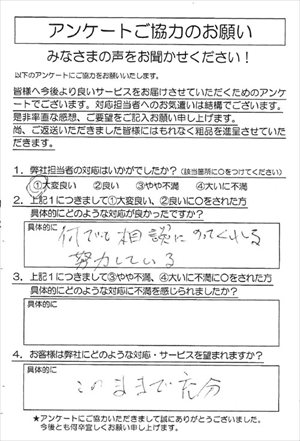 アンケートご協力のお願い
みなさまの声をお聞かせください!
以下のアンケートにご協力をお願いいたします。
皆様へ今後より良いサービスをお届けさせていただくためのアンケ
ートでございます。対応担当者へのお気遣いは結構でございます。
是非率直な感想、ご要望をご記入お願い申し上げます。
尚、ご返送いただきました皆様にはもれなく粗品を進呈させていた
だきます。
1.弊社担当者の対応はいかがでしたか?(該当箇所に〇をつけてください)
①大変良い ②良い ③やや不満 ④大いに不満
2.上記1につきまして①大変良い、②良いに〇をされた方
具体的にどのような対応が良かったですか?
具体的に
何でも相談にのってくれる
努力している
3.上記1につきまして③やや不満、④大いに不満に〇をされた方
具体的にどのような対応に不満を感じられましたか?
具体的に
4.お客様は弊社にどのような対応・サービスを望まれますか?
具体的に
このままで充分
★アンケートにご協力いただきまして誠にありがとうございました。
今後とも何卒宜しくお願い申し上げます。